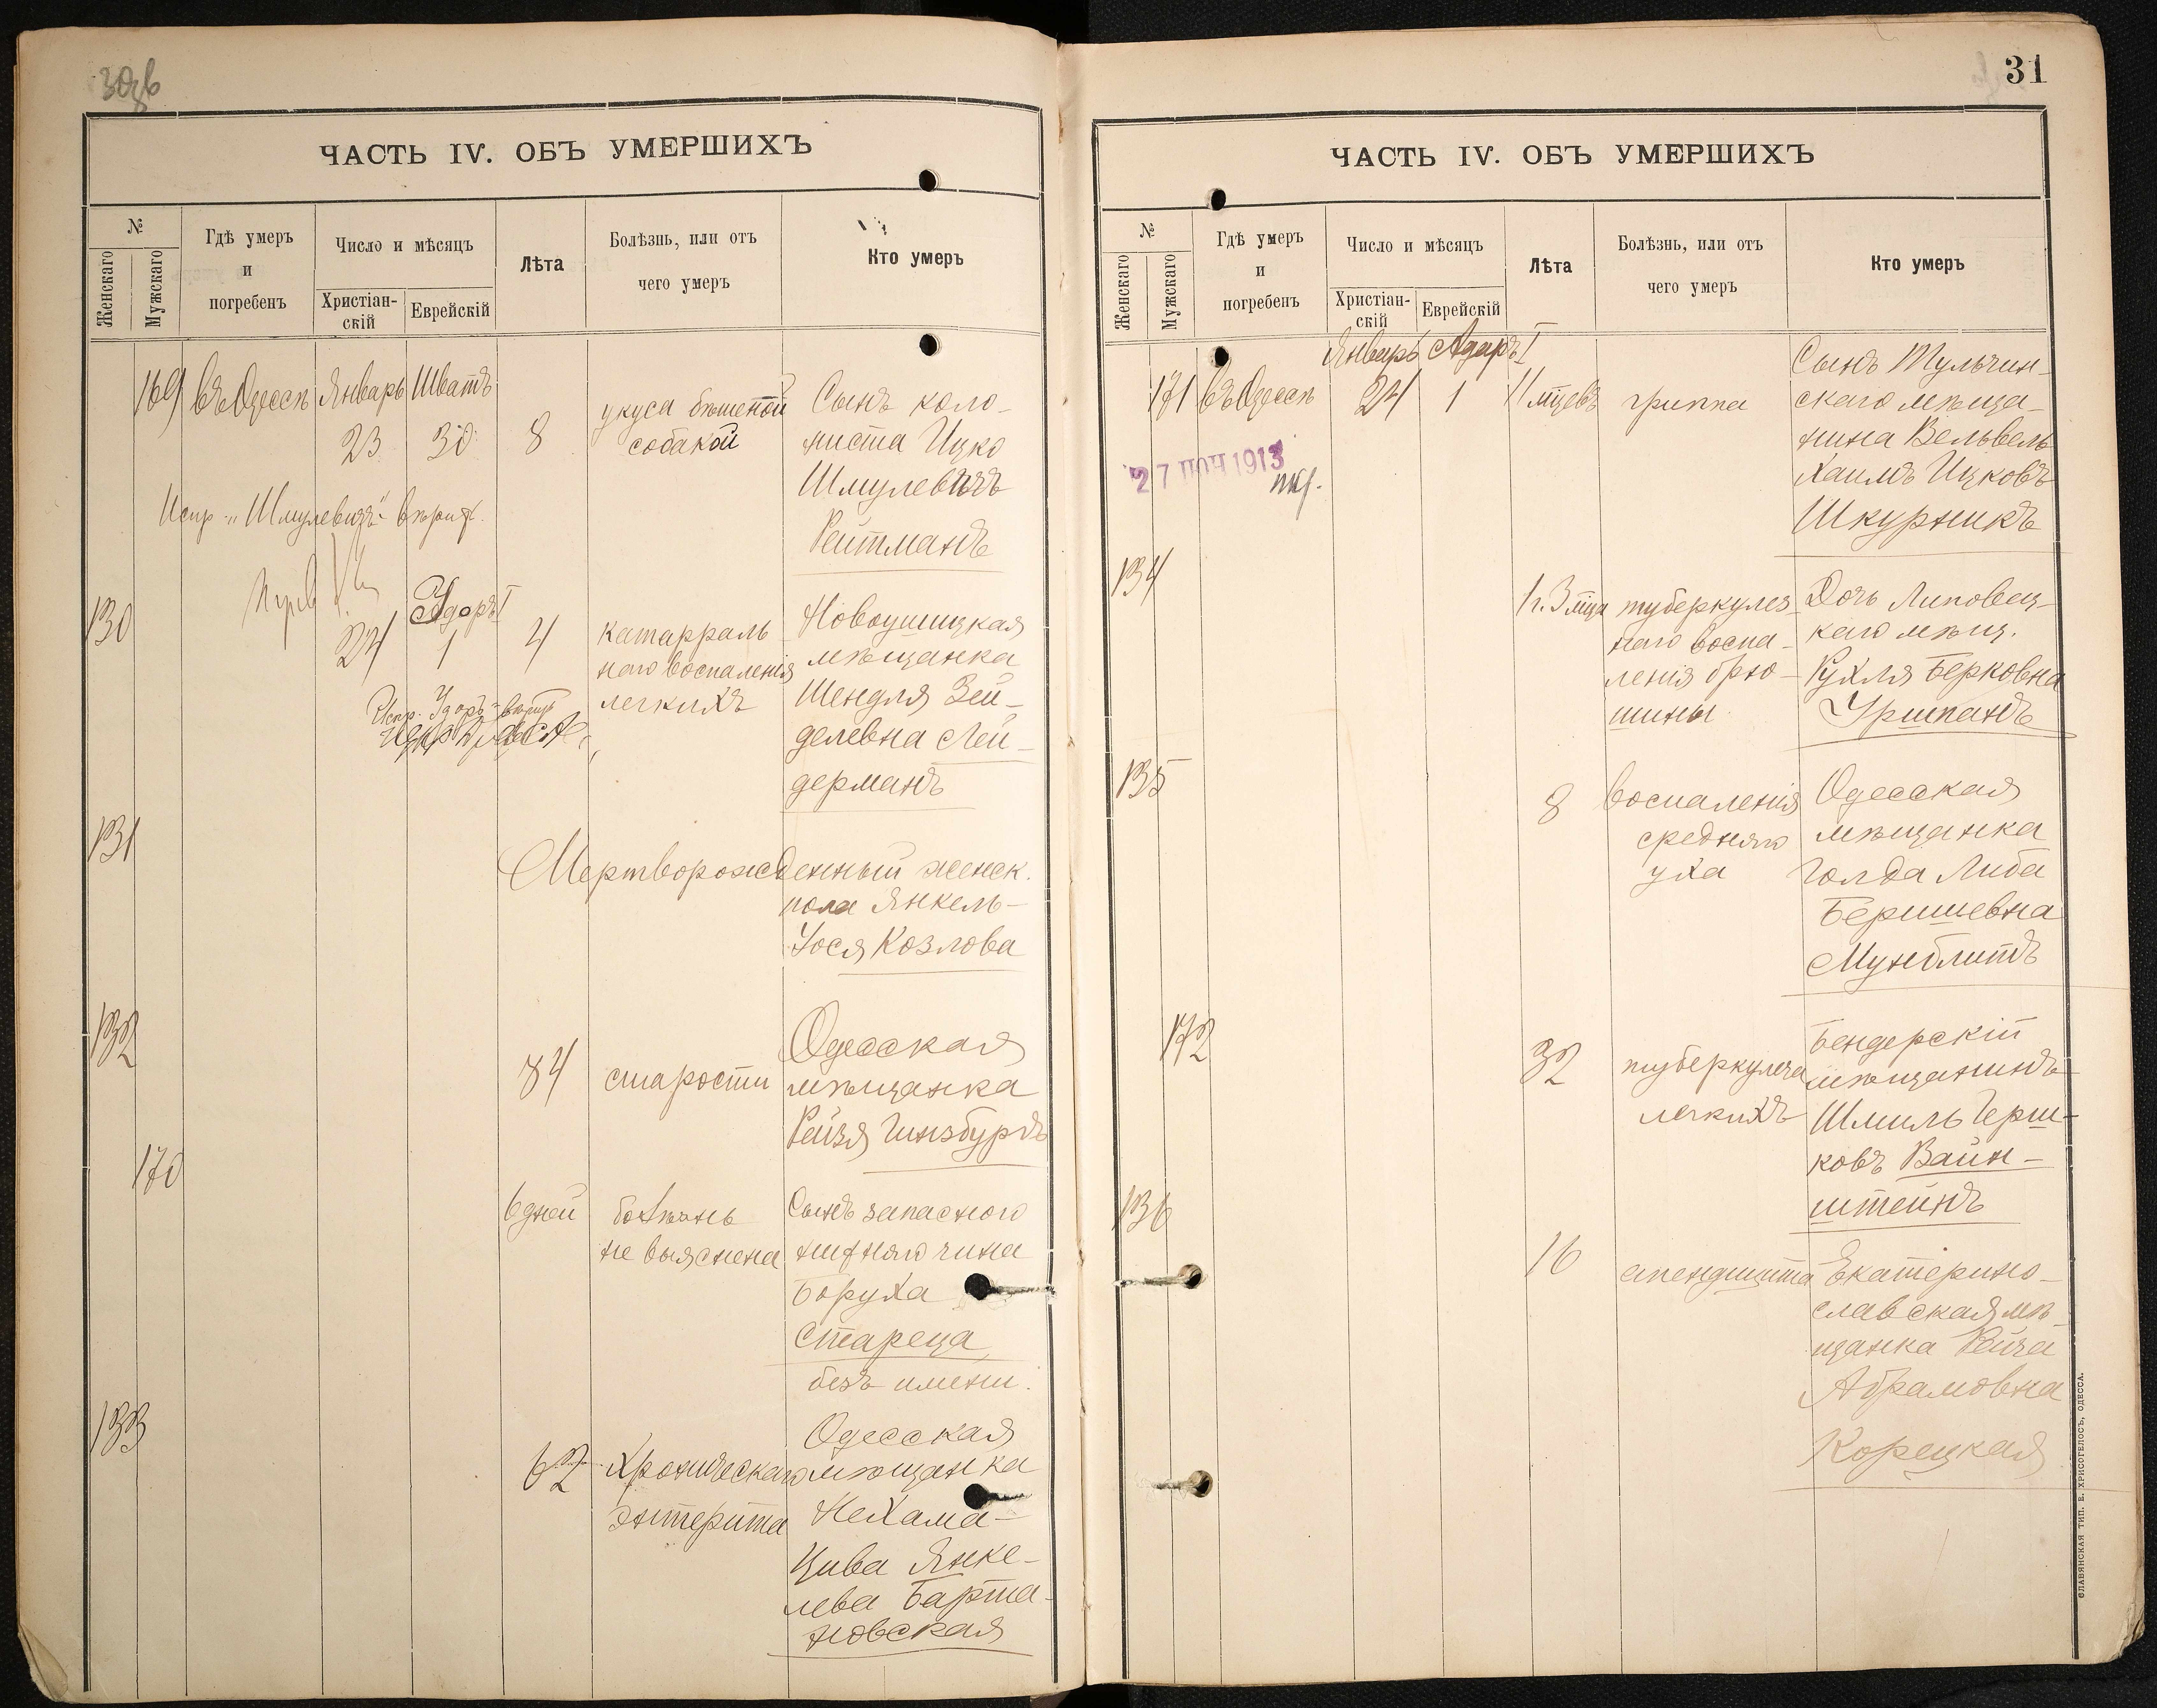 30об
ЧАСТЬ IV. ОБЪ УМЕРШИХЪ
№
Женскаго
Мужскаго
Гдѣ умеръ
и
погребенъ
Число и мѣсяцъ
Христіан-
скій
Еврейскій
Лѣта
Болѣзнь, или отъ
чего умеръ
Кто умеръ
169 въ Одессѣ Январь Шватъ
23 30 8
укуса бѣшеной
собакой
Сынъ коло-
ниста Ицко
Шмулевичъ
Рейтманъ
Испр. „Шмулевичъ" вѣрит.
130
Адаръ I
24 1 4
катарраль-
наго воспаленія
легкихъ
Новоушицкая
мѣщанка
Шендля Зей-
делевна Лей-
дерманъ
Испр. Адаръ
131
Мертворожденный женск.
пола Янкель-
Іося Козлова
132
84 старости
Одесская
мѣщанка
Рейзя Гинзбургъ
170
6 дней болѣзнь
не выяснена
Сынъ запасного
нижняго чина
Боруха
Стареца,
безъ имени.
133
62 Хроническаго
энтерита
Одесская
мѣщанка
Нехама-
Цива Янке-
лева Барта-
новская
31
ЧАСТЬ IV. ОБЪ УМЕРШИХЪ
№
Женскаго
Мужскаго
Гдѣ умеръ
и
погребенъ
Число и мѣсяцъ
Христіан-
скій
Еврейскій
Лѣта
Болѣзнь, или отъ
чего умеръ
Кто умеръ
Январь Адаръ I
171 въ Одессѣ 24 1 11 мцевъ гриппа
Сынъ Тульчин-
скаго мѣща-
нина Вельвель
Хаимъ Ицковъ
Шкурникъ
27 ІЮН 1913
134
1 г. 3 мца туберкулез-
наго воспа-
ленія брю-
шины
Дочь Липовец-
каго мѣщ.
Рухля Берковна
Уришанъ
135
8 воспаленія
средняго
уха
Одесская
мѣщанка
Голда Либа
Беришевна
Мунблитъ
172
32 туберкулеза
легкихъ
Бендерскій
мѣщанинъ
Шмиль Герш-
ковъ Вайн-
штейнъ
136
16 апендицита
Екатерино-
славская мѣ-
щанка Рейза
Абрамовна
Корецкая
СЛАВЯНСКАЯ ТИП. Е. ХРИСОГЕЛОСЪ, ОДЕССА.